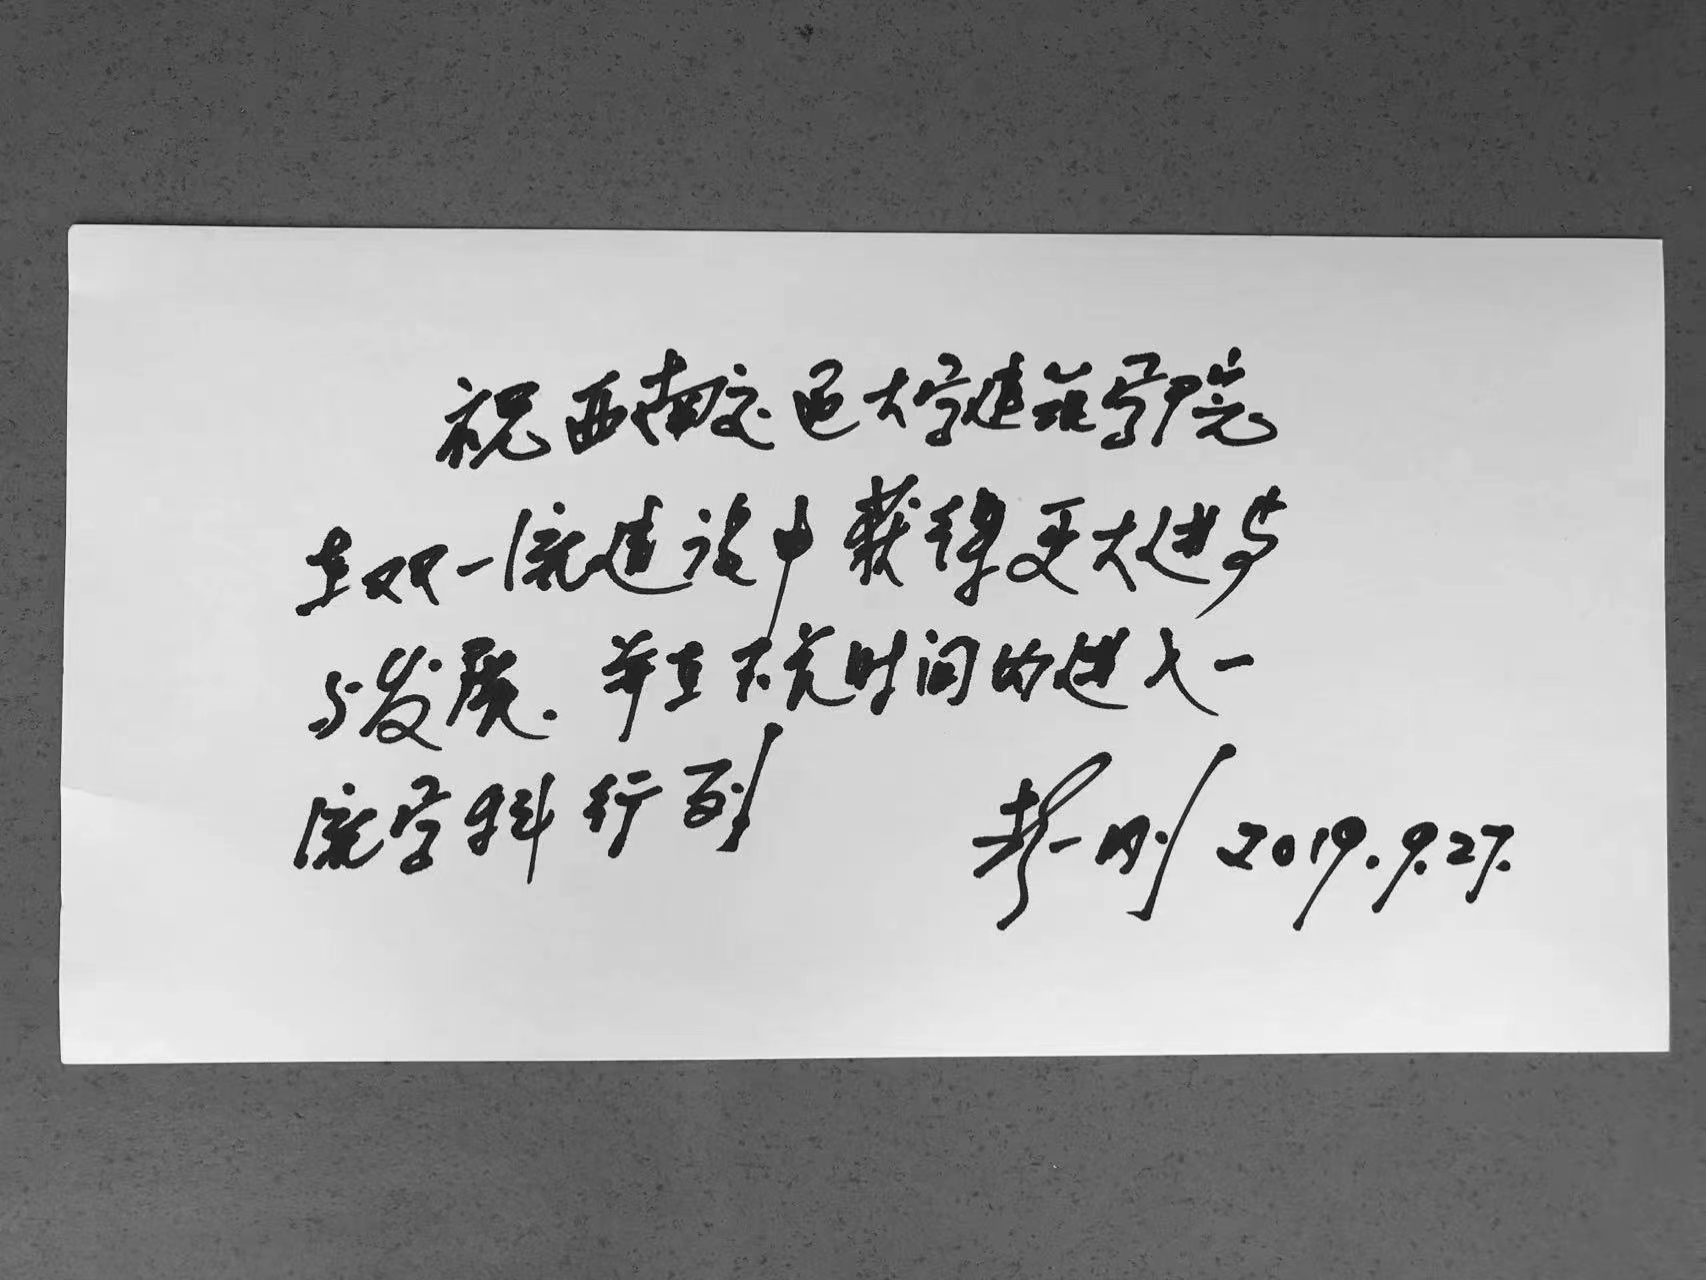 祝西南交通大学建筑学院
在双一流建设中获得更大进步
与发展.并在不完时间的进入一
流学科行列
彭一刚 2019.9.27.